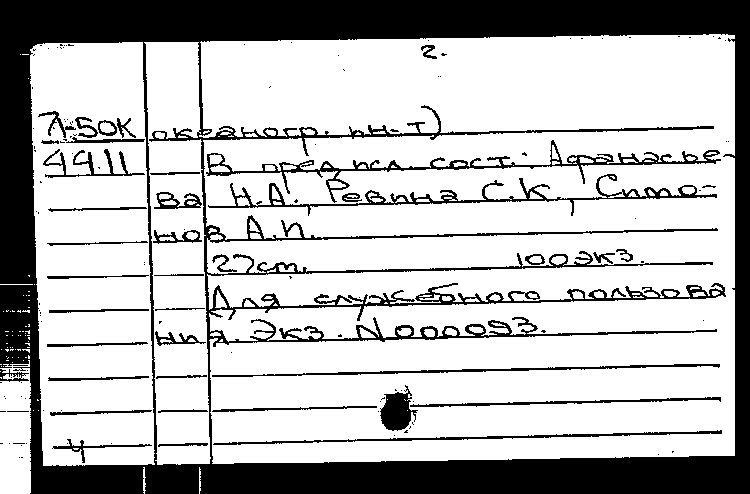 2.
Л-50К океаногр. ин-т)
4411 В предисл. сост.: Афанасье-
ва Н.А., Ревина С.К., Симо-
нов А.И.
27см. 100экз.
Для служебного пользова-
ния. Экз. N000093.
Ч